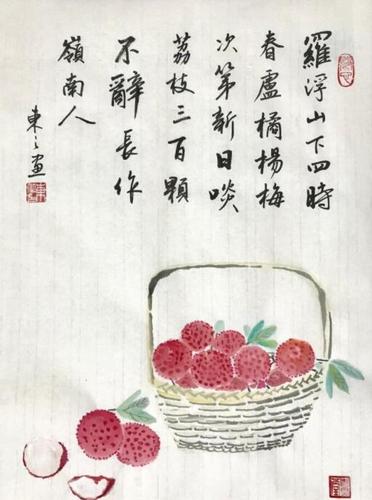 羅浮山下四時
春盧橘楊梅
次第新日啖
荔枝三百顆
不辭長作
嶺南人
東之画